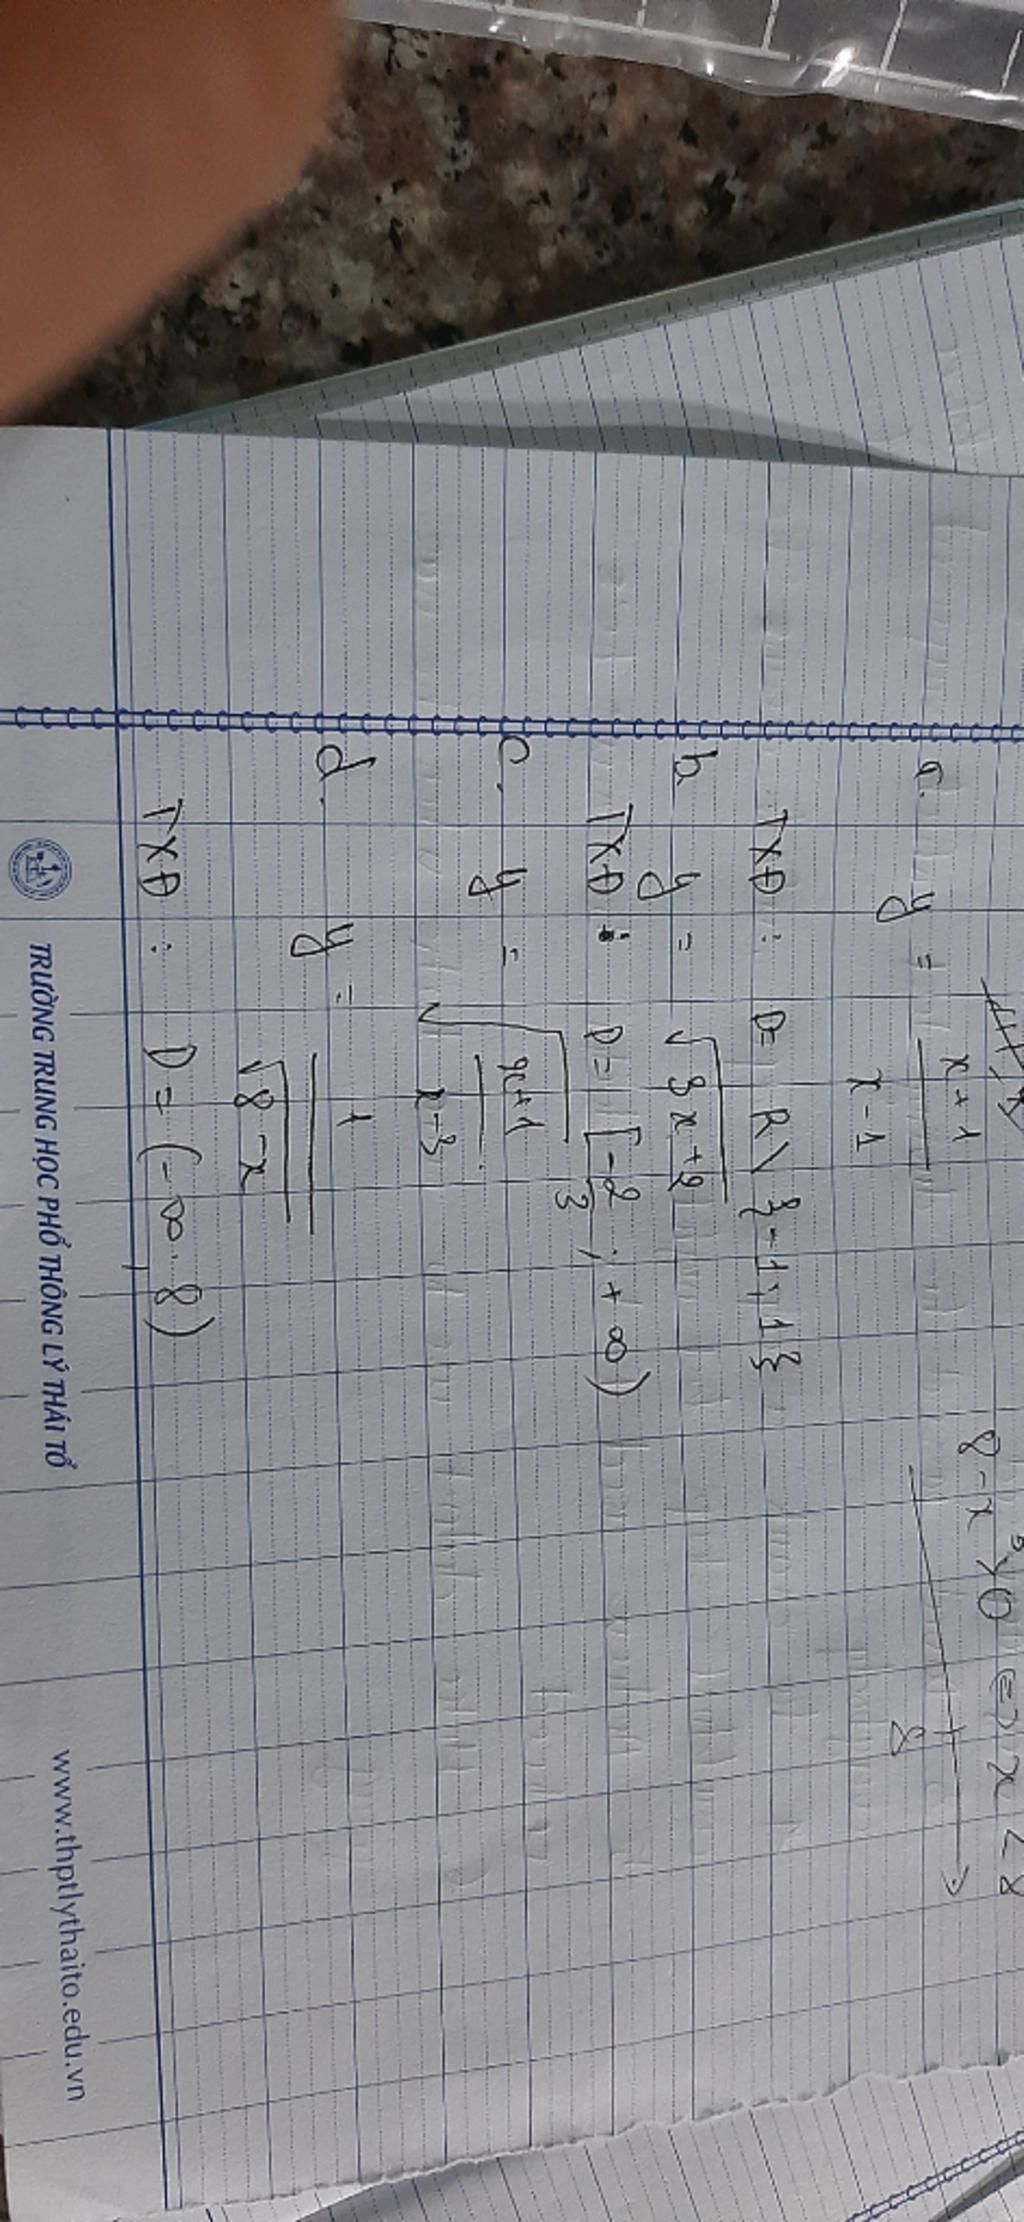 8 - x > 0 ⇔ x < 8
8
a. y = \frac{x+1}{x-1}
TXĐ : D = R \ {-1; 1}
b. y = \sqrt{3x+2}
TXĐ : D = [\frac{-2}{3} ; +∞)
c. y = \sqrt{\frac{x+1}{x-3}}
d. y = \frac{1}{\sqrt{8-x}}
TXĐ : D = (-∞. 8)
TRƯỜNG TRUNG HỌC PHỔ THÔNG LÝ THÁI TỔ
www.thptlythaito.edu.vn